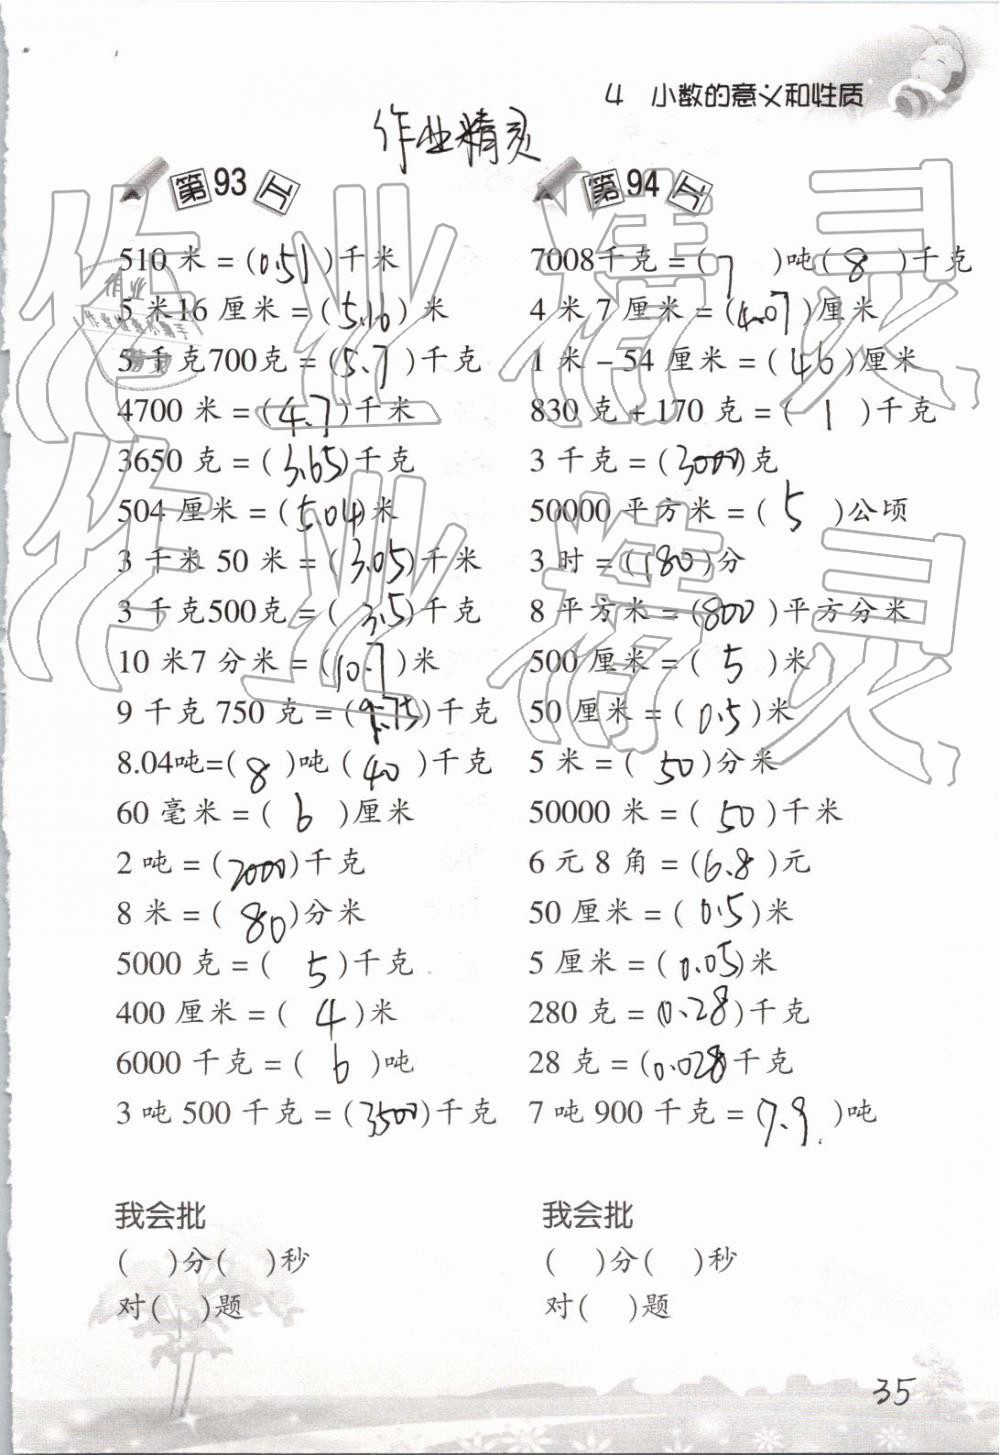 4 小数的意义和性质
作业精灵
第93
510 米 = (0.51)千米
5 米16 厘米 = (5.16) 米
5 千克700克 = (5.7)千克
4700 米 = (4.7)千米
3650 克 = (3.65)千克
504 厘米 = (5.04)米
3 千米 50 米 = (3.05)千米
3 千克500克 = (3.5)千克
10 米7 分米 = (10.7)米
9 千克 750 克 = (9.75)千克
8.04吨=(8)吨(40)千克
60 毫米 = (6)厘米
2 吨 = (2000)千克
8 米 = (80)分米
5000 克 = (5)千克
400 厘米 = (4)米
6000 千克 = (6)吨
3 吨 500 千克 = (3500)千克
我会批
( )分( )秒
对( )题
第94
7008千克 = (7)吨(8)千克
4 米 7 厘米 = (4.07)厘米
1 米 − 54 厘米 = (46)厘米
830 克 + 170 克 = (1)千克
3 千克 = (3000)克
50000 平方米 = (5)公顷
3 时 = (180)分
8 平方米 = (800)平方分米
500 厘米 = (5)米
50 厘米 = (0.5)米
5 米 = (50)分米
50000 米 = (50)千米
6 元 8 角 = (6.8)元
50 厘米 = (0.5)米
5 厘米 = (0.05)米
280 克 = (0.28)千克
28 克 = (0.028千克
7 吨 900 千克 = (7.9)吨
我会批
( )分( )秒
对( )题
35
作业精灵
作业精灵